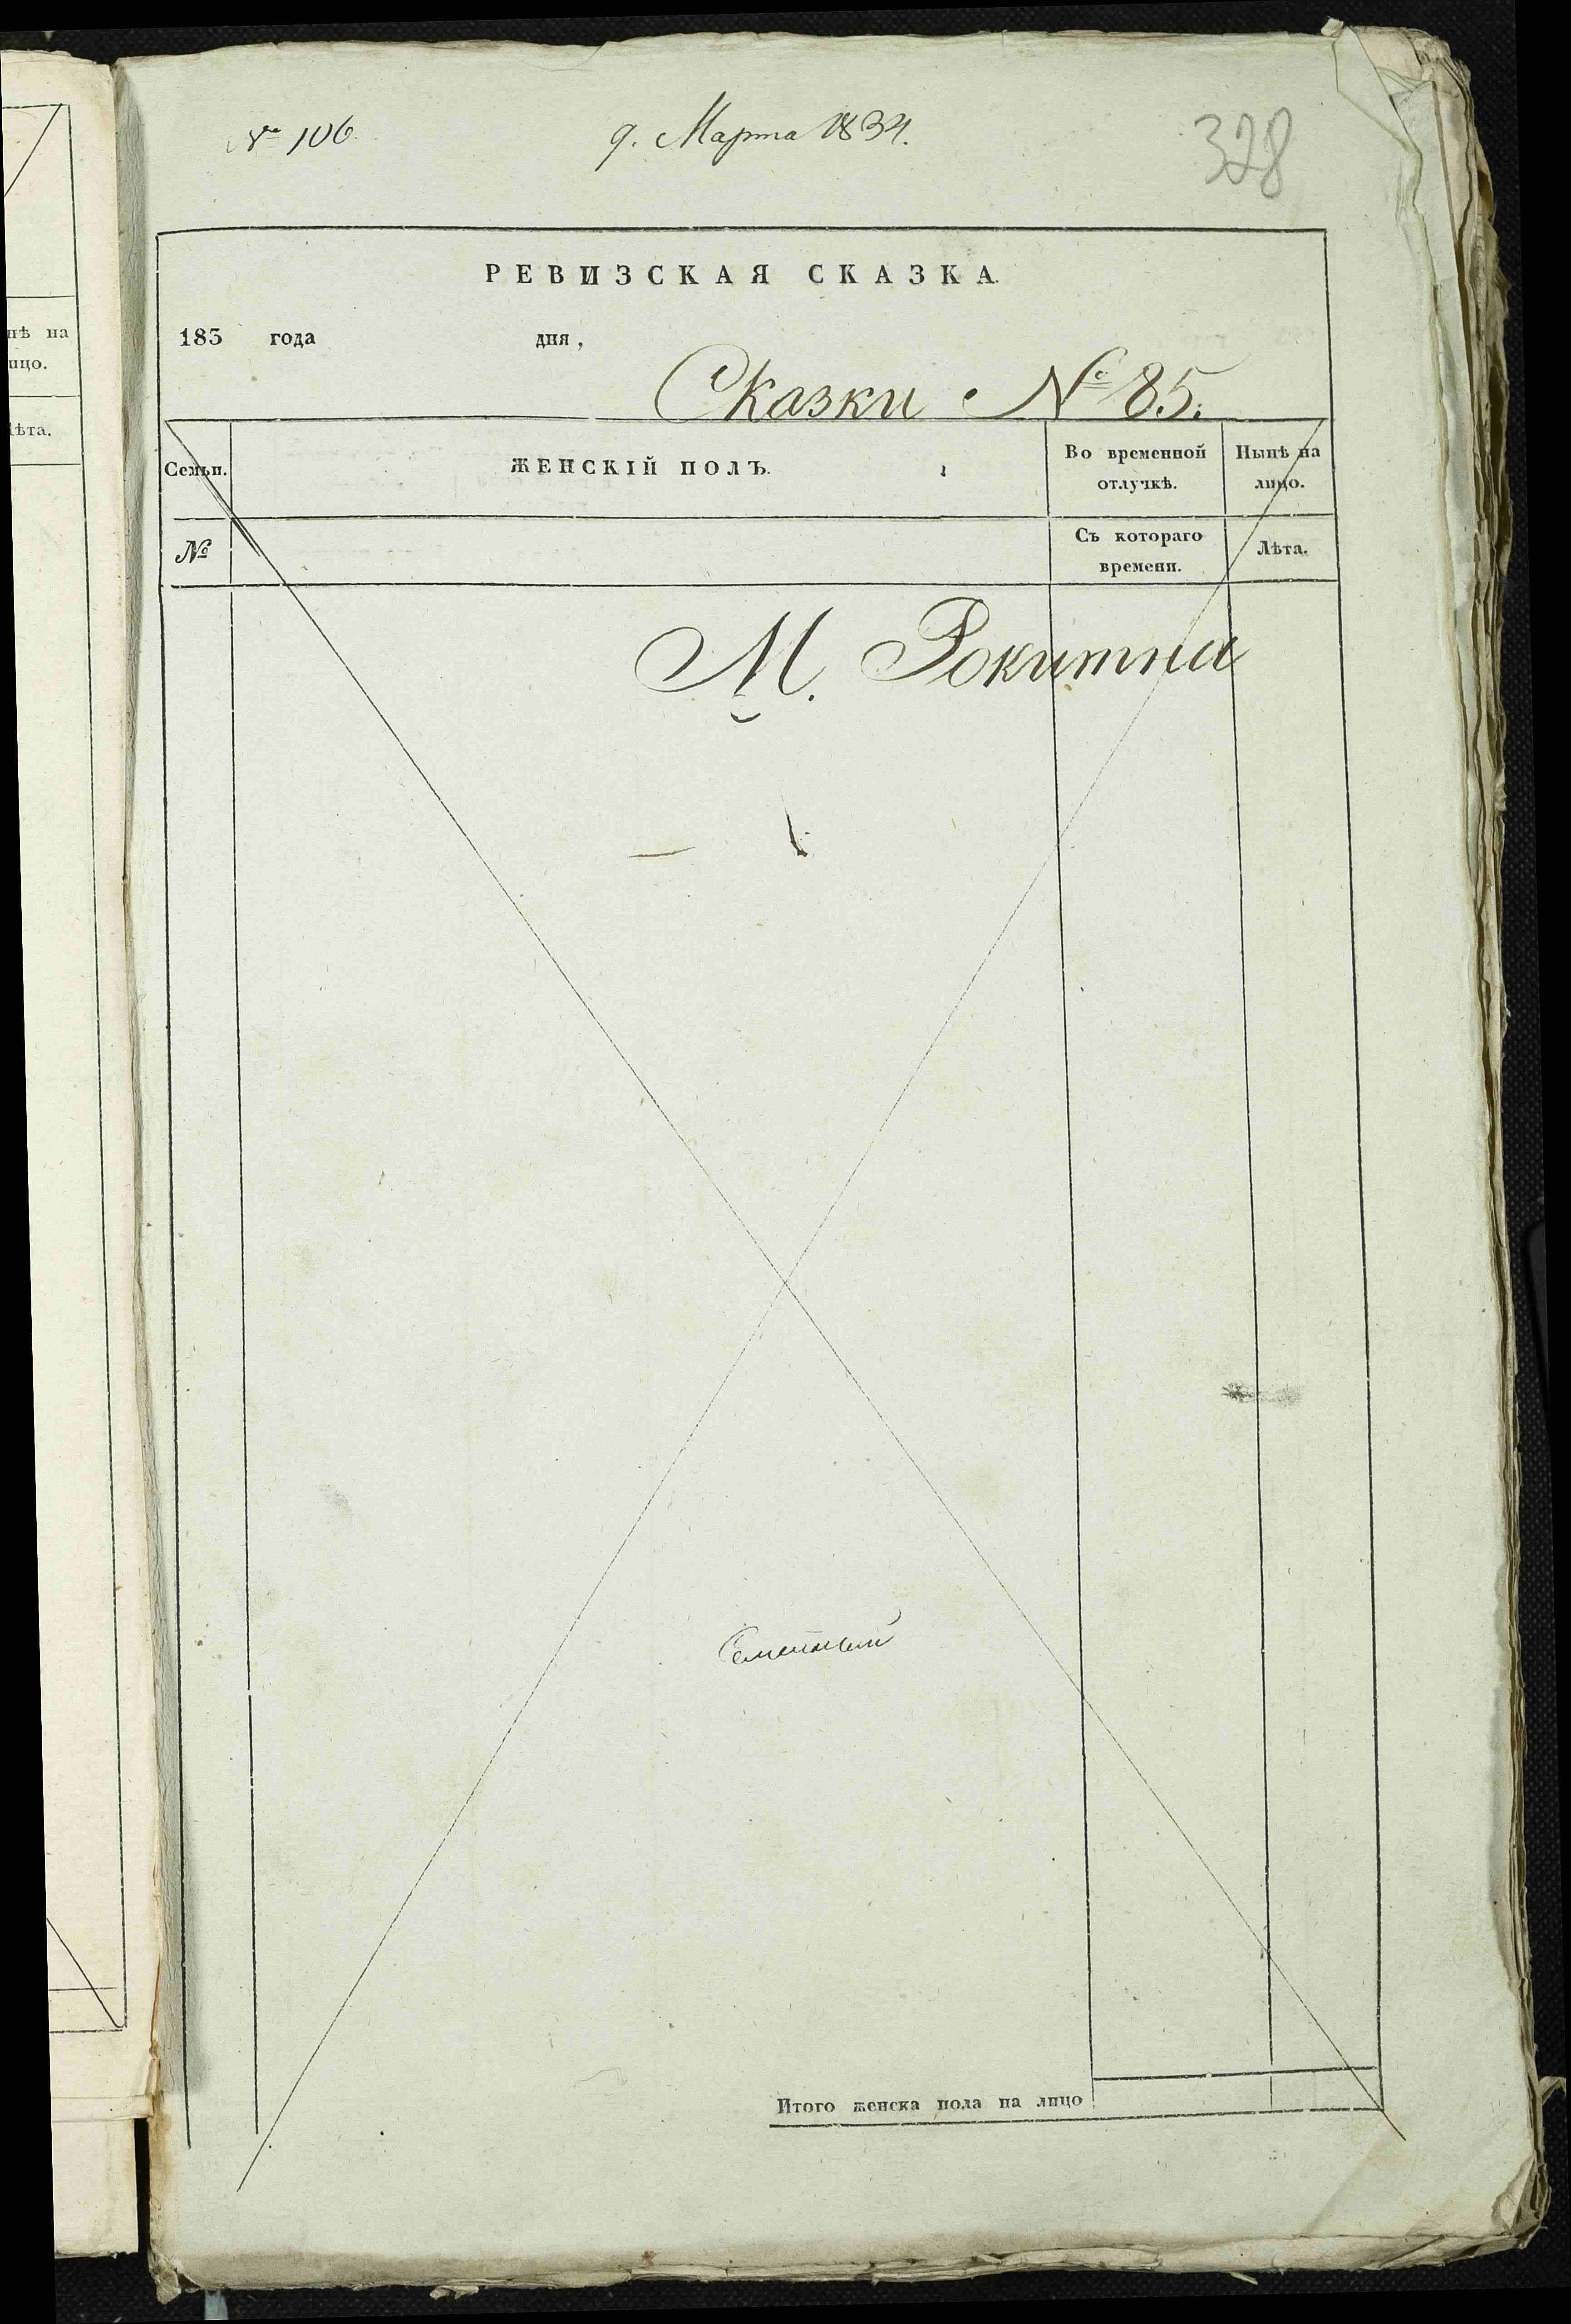 № 106.
9. Марта 1834.
328
РЕВИЗСКАЯ СКАЗКА.
183 года дня,
Сказки № 85.
Семьи.
ЖЕНСКІЙ ПОЛЪ.
Во временной отлучкѣ.
Нынѣ на лицо.
№
Съ котораго времени.
Лѣта.
М. Рокитна
Итого женска пола на лицо
нѣ на
ицо.
ѣта.